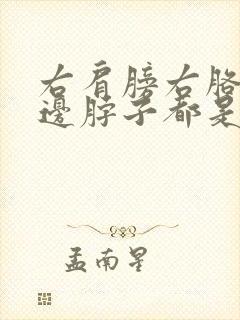 右肩膀右胳
邊脖子都是
孟南星